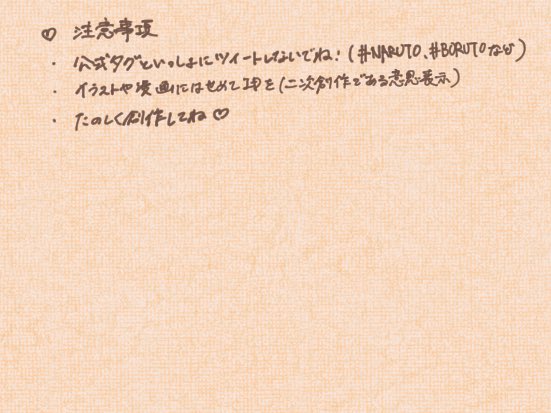 ♡ 注意事項
・ 公式タグといっしょにツイートしないでね！(#NARUTO、#BORUTOなど)
・ イラストや漫画にはせめてIDを(二次創作である意思表示)
・ たのしく創作してね♡